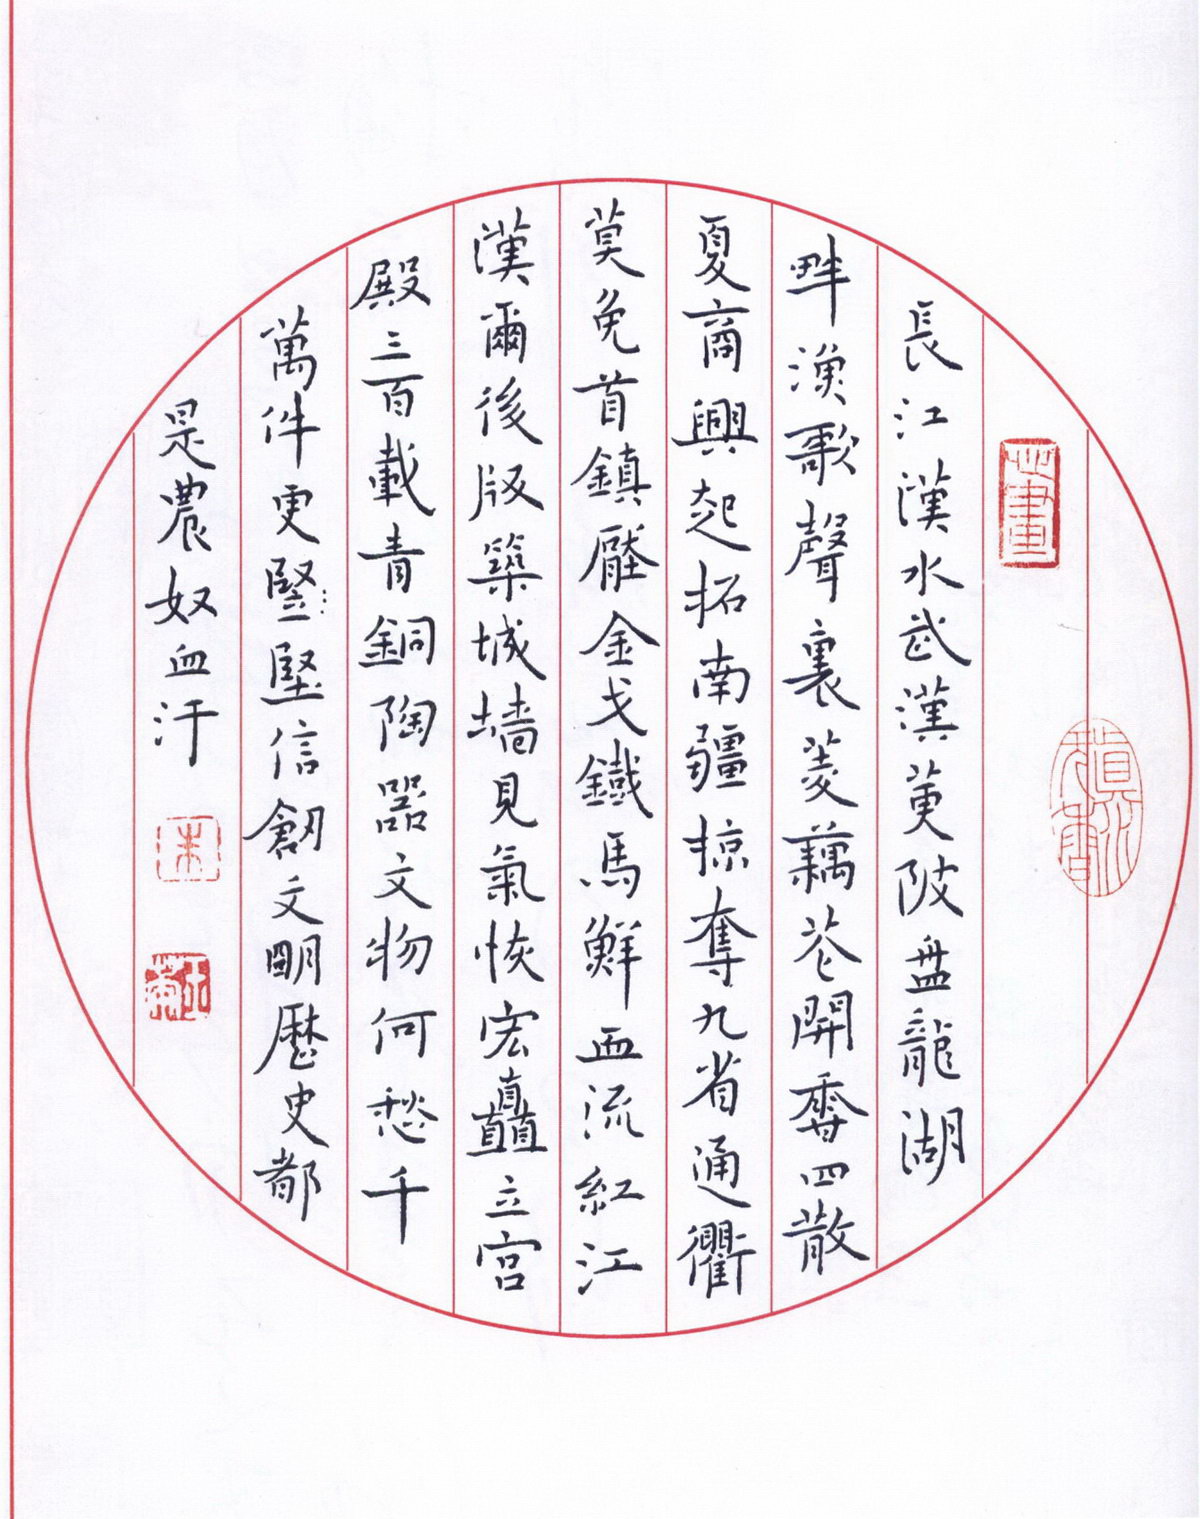 長江漢水武漢黄陂盘龍湖
畔漁歌聲裏菱藕花開香四散
夏商興起拓南疆掠奪九省通衢
莫免首鎮壓金戈鐵馬鮮血流紅江
漢爾後版築城墙見氣恢宏矗立宫
殿三百載青銅陶器文物何愁千
萬件更豎堅信創文明歷史都
是農奴血汗